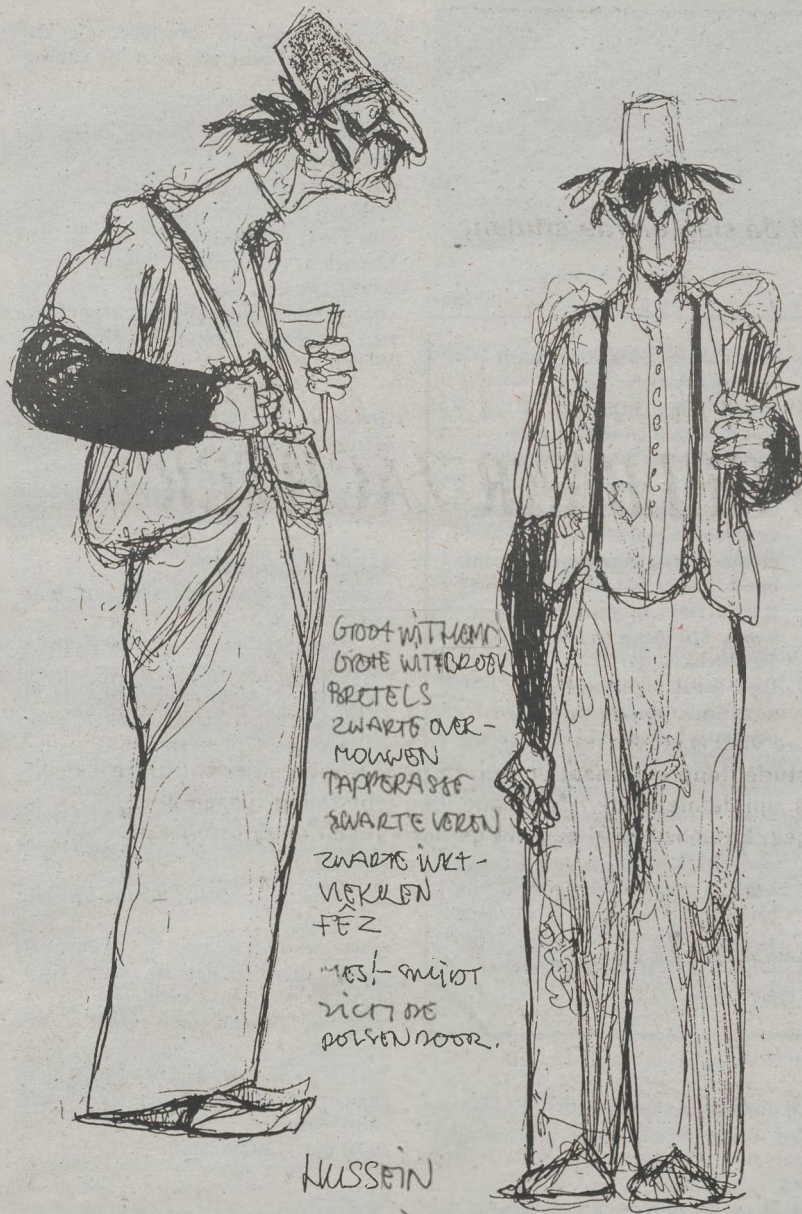 GROOT WIT HEMD
GROTE WITTE BROEK
BRETELS
ZWARTE OVER-
MOUWEN
PAPPERASSE
ZWARTE VEREN
ZWARTE INKT-
VLEKKEN
FÊZ
MES!- SNIJDT
ZICH DE
POLSEN DOOR.
HUSSEIN